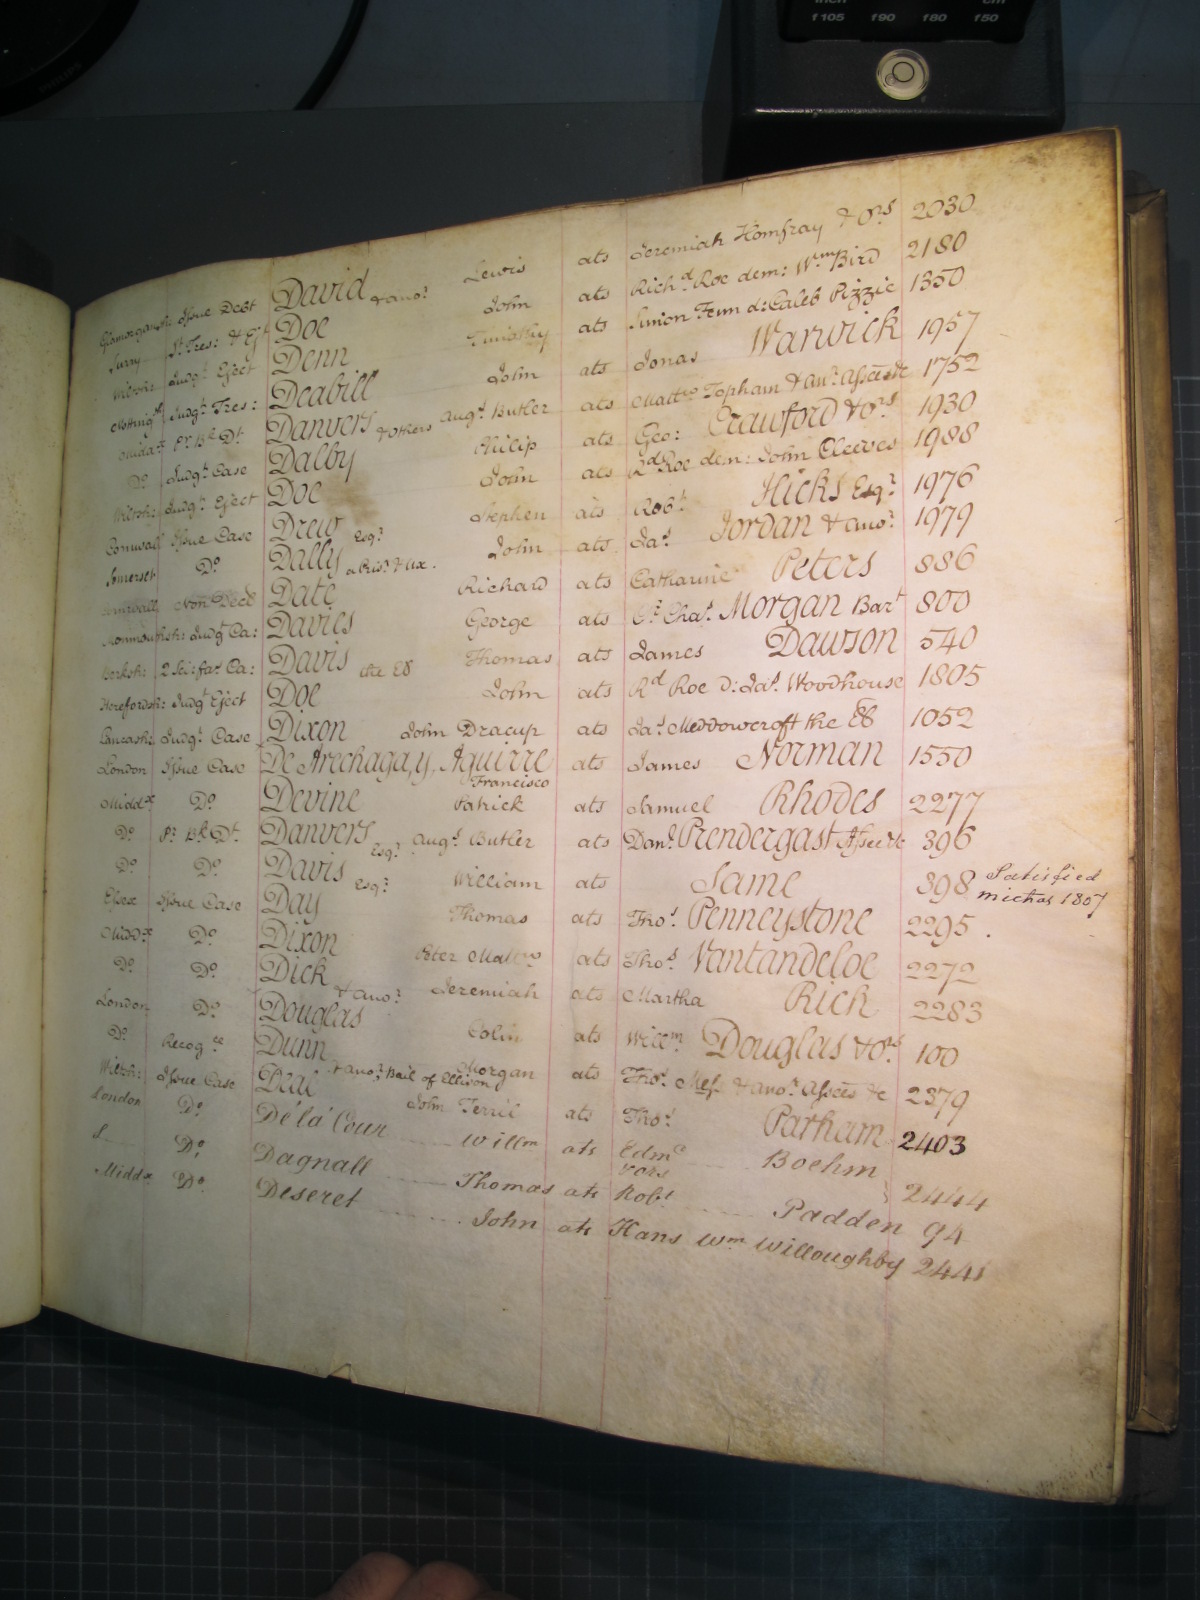 inch cm
f105 f90 f80 f50
PHILIPS
Glamorgansh: Issue Debt David & anor. Lewis ats Jeremiah Homfray & Ors 2030
Surry St. Tres: & Ejt Doe John ats Richd Roe dem: Wm Bird 2180
Wiltsh: Judgt Eject Denn Timothy ats Simon Fenn d: Caleb Pizzie 1350
Nottingh Judgt Tres: Deabill John ats Jonas Warwick 1957
Middx Pr. Bk Dt. Danvers & others Augs Butler ats Mattw Topham & anr. Assees &c 1752
Do Judgt Case Dalby Philip ats Geo: Crawford & Ors 1930
Wiltsh: Judgt Eject Doe John ats Rd Roe dem: John Cleeves 1988
Cornwall Issue Case Drew Esqr. Stephen ats Robt Hicks Esqr. 1976
Somerset Do Dally a Priso. & Ux. John ats Jas. Jordan & anor. 1979
Cornwall Non Decd Date Richard ats Catharine Peters 886
Monmouthsh: Judgt Ca: Davies George ats Sr. Chas. Morgan Bart 800
Berksh: 2 Sci: fas Ca: Davis the Er Thomas ats James Dawson 540
Herefordsh: Judgt Eject Doe John ats Rd Roe D: Jas. Woodhouse 1805
Lancash: Judgt Case Dixon John Dracup ats Jas. Meddowcroft the Er 1052
London Issue Case De Arechaga, y, Aguirre Francisco ats James Norman 1550
Middx Do Devine Patrick ats Samuel Rhodes 2277
Do Pr. Bk Dt. Danvers Esqr. Augs Butler ats Danl. Prendergast Assee &c 396
Do Do Davis Esqr. William ats Same 398 Satisfied
michas 1807
Essex Issue Case Day Thomas ats Thos. Penneystone 2295.
Middx Do Dixon Peter Mattw ats Thos. Vantandeloe 2272
Do Do Dick & anor. Jeremiah ats Martha Rich 2283
London Do Douglas Colin ats Willm. Douglas & Ors 100
Do Recogce Dunn & anor. Bail of Ellison Morgan ats Thos. & anor. Assees &c 2379
Wiltsh: Issue Case Deal John Terrii ats Thos. Parham 2403
London Do De la Cour Willm ats Edmd & ors Boehm 2444
Do Dagnall Thomas ats Robt Padden 94
Middx Do Deseret John ats Hans Wm Willoughby 2441